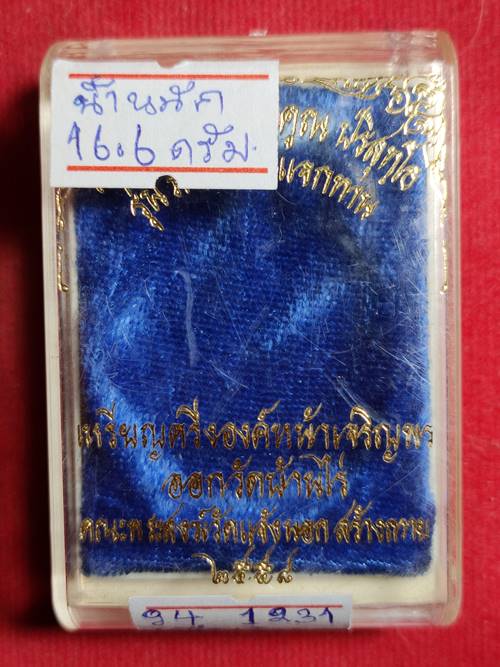 น้ำหนัก
16.6 กรัม.
คูณ ปริสุทฺโธ
รุ่น แจกทาน
เหรียญครึ่งองค์หน้าเจริญพร
ออกวัดบ้านไร่
คณะพระสงฆ์วัดแจ้งนอก สร้างถวาย
๒๕๕๘
94. 1231